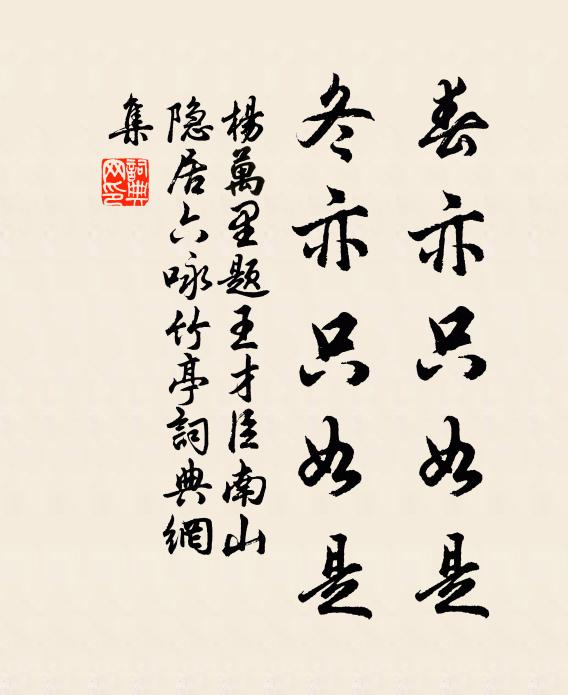 春亦只如是
冬亦只如是
楊萬里题王才臣南山
隐居六咏竹亭詞典網
集
詞典
网印